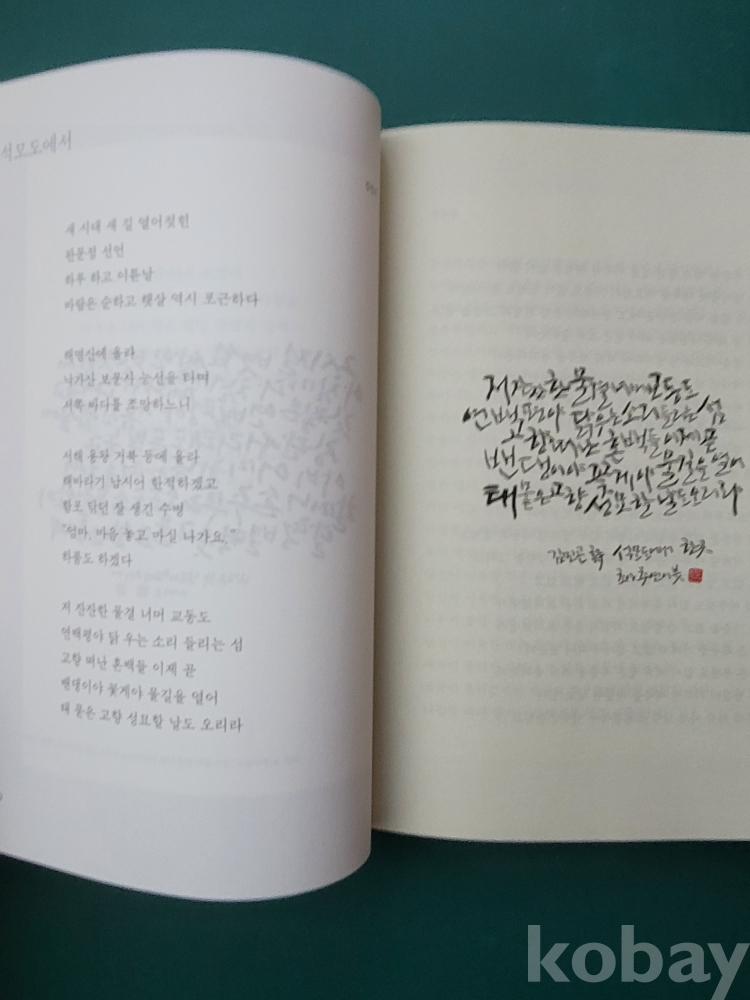 석모도에서
새 시대 새 길 열어젖힌
판문점 선언
하루 하고 이튿날
바람은 순하고 햇살 역시 포근하다
해명산에 올라
낙가산 보문사 능선을 타며
서쪽 바다를 조망하느니
서해 용왕 거북 등에 올라
해바라기 낚시여 한적하겠고
함포 닦던 잘 생긴 수병
"엄마, 마음 놓고 마실 나가요."
하품도 하겠다
저 잔잔한 물결 너머 교동도
연백평야 닭 우는 소리 들리는 섬
고향 떠난 혼백들 이제 곧
밴댕이야 꽃게야 물길을 열어
태 묻은 고향 성묘할 날도 오리라
저 잔잔한 물결 너머 교동도
연백평야 닭 우는 소리 들리는 섬
고향 떠난 혼백들 이제 곧
밴댕이야 꽃게야 물길을 열어
태 묻은 고향 성묘할 날도 오리라
김민곤 詩 석모도에서 한 구
kobay